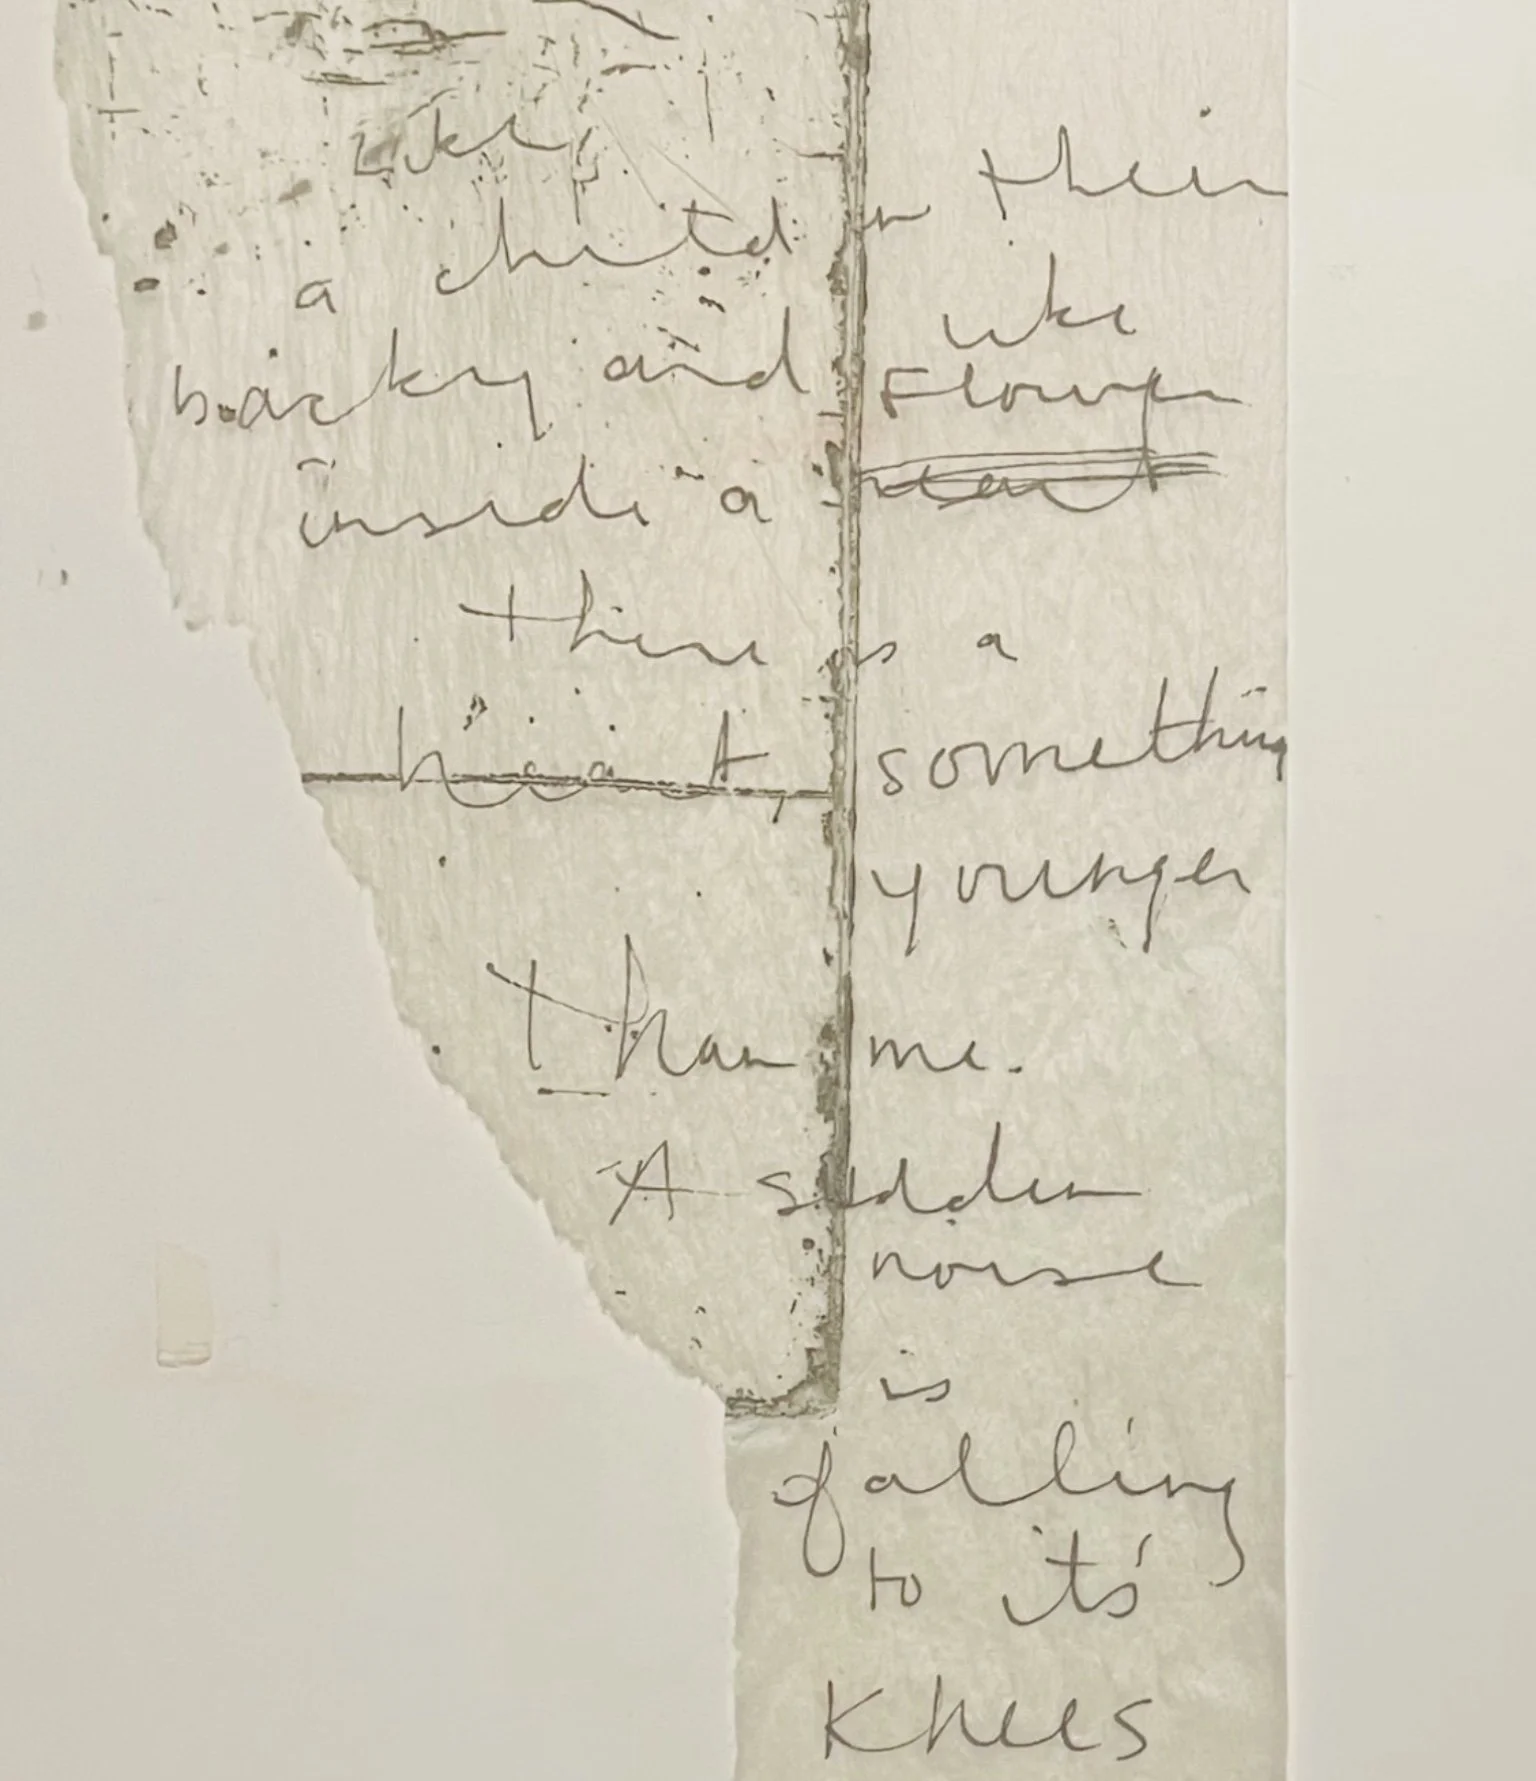 like
a child in their
backy and like
Flower
inside a
there is a
heart, something
younger
than me.
A sudden
noise
is
falling
to it's
Knees